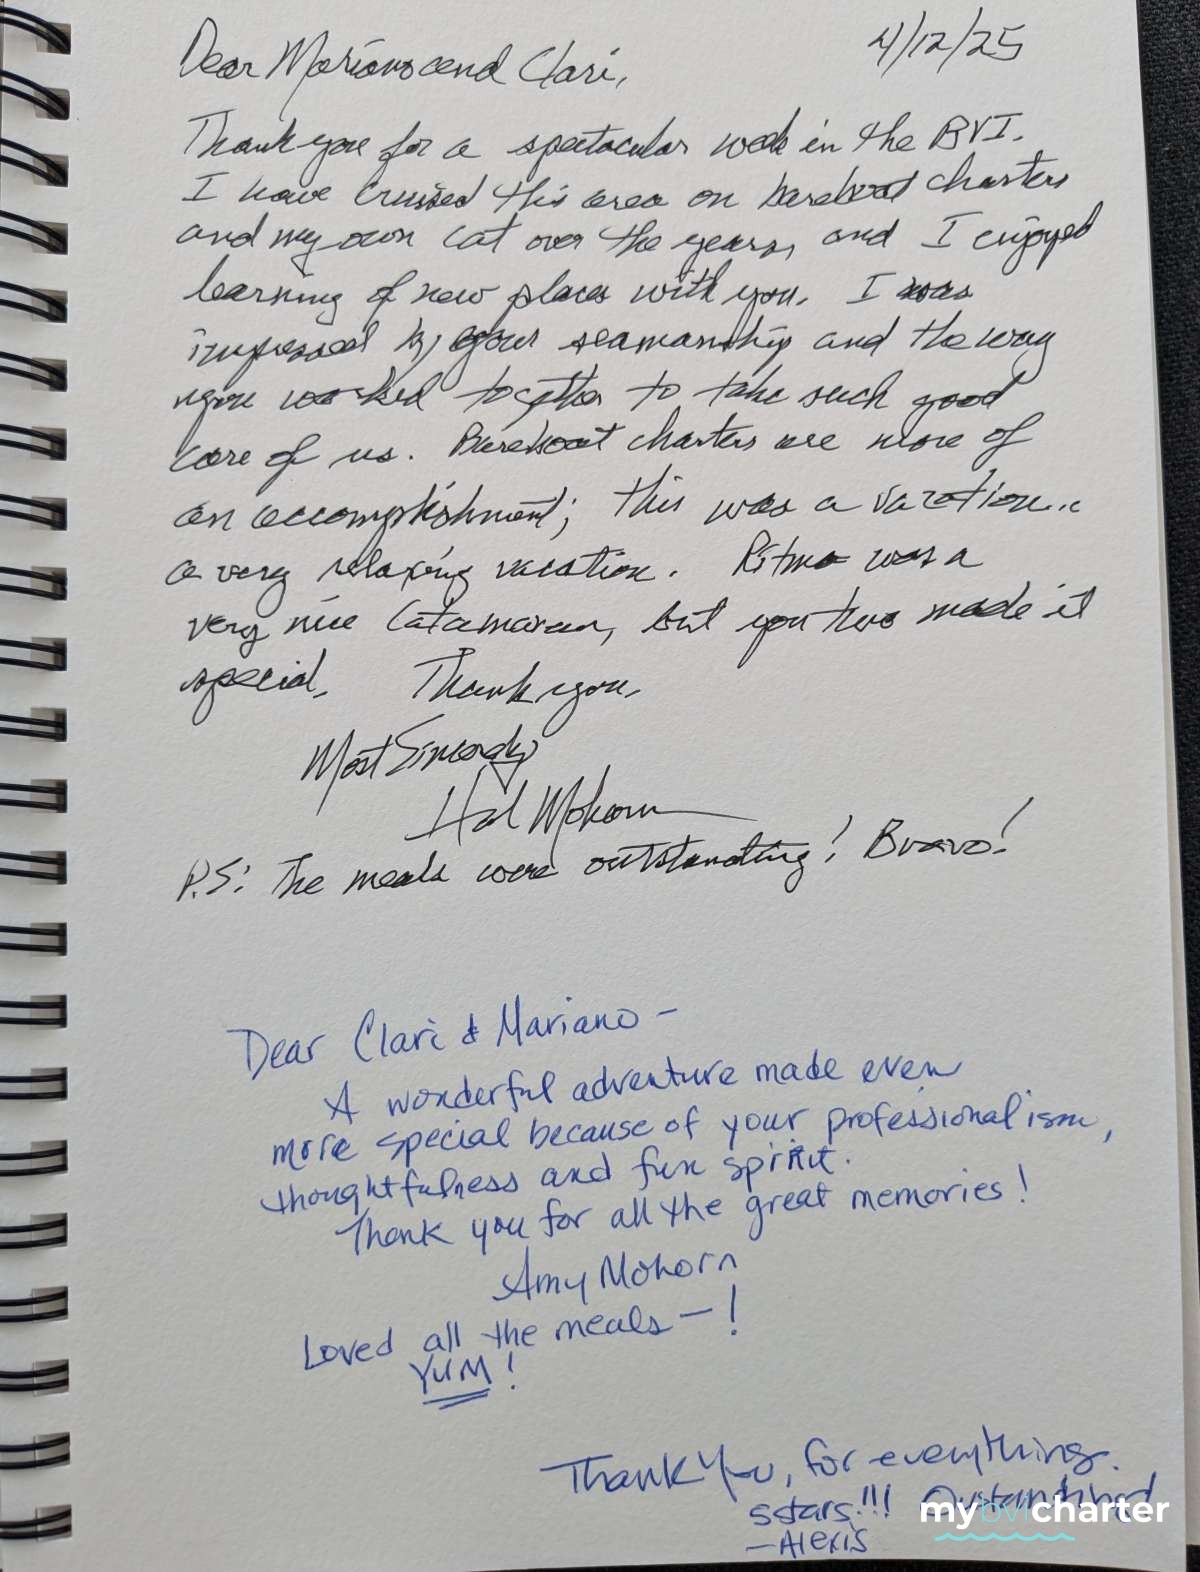 4/12/25
Dear Mariano and Clari,
Thank you for a spectacular week in the BVI.
I have cruised this area on bareboat charters
and my own cat over the years, and I enjoyed
learning of new places with you. I was
impressed by your seamanship and the way
you worked together to take such good
care of us. Bareboat charters are more of
an accomplishment; this was a vacation...
a very relaxing vacation. Ritmo was a
very nice catamaran, but you two made it
special. Thank you,
Most Sincerely,
Hal Mohorn
P.S: The meals were outstanding! Bravo!
Dear Clari & Mariano -
A wonderful adventure made even
more special because of your professionalism,
thoughtfulness and fun spirit.
Thank you for all the great memories!
Amy Mohorn
Loved all the meals - !
YUM!
Thank You, for everything.
5stars!!! Outstanding
- Alexis
mybvicharter